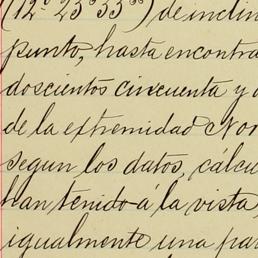 (12° 23' 33") de inclin
punto, hasta encontra
doscientos cincuenta y
de la extremidad Nor
segun los datos, cálcu
han tenido á la vista,
igualmente una par